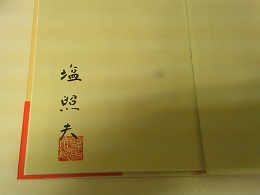 塩照夫